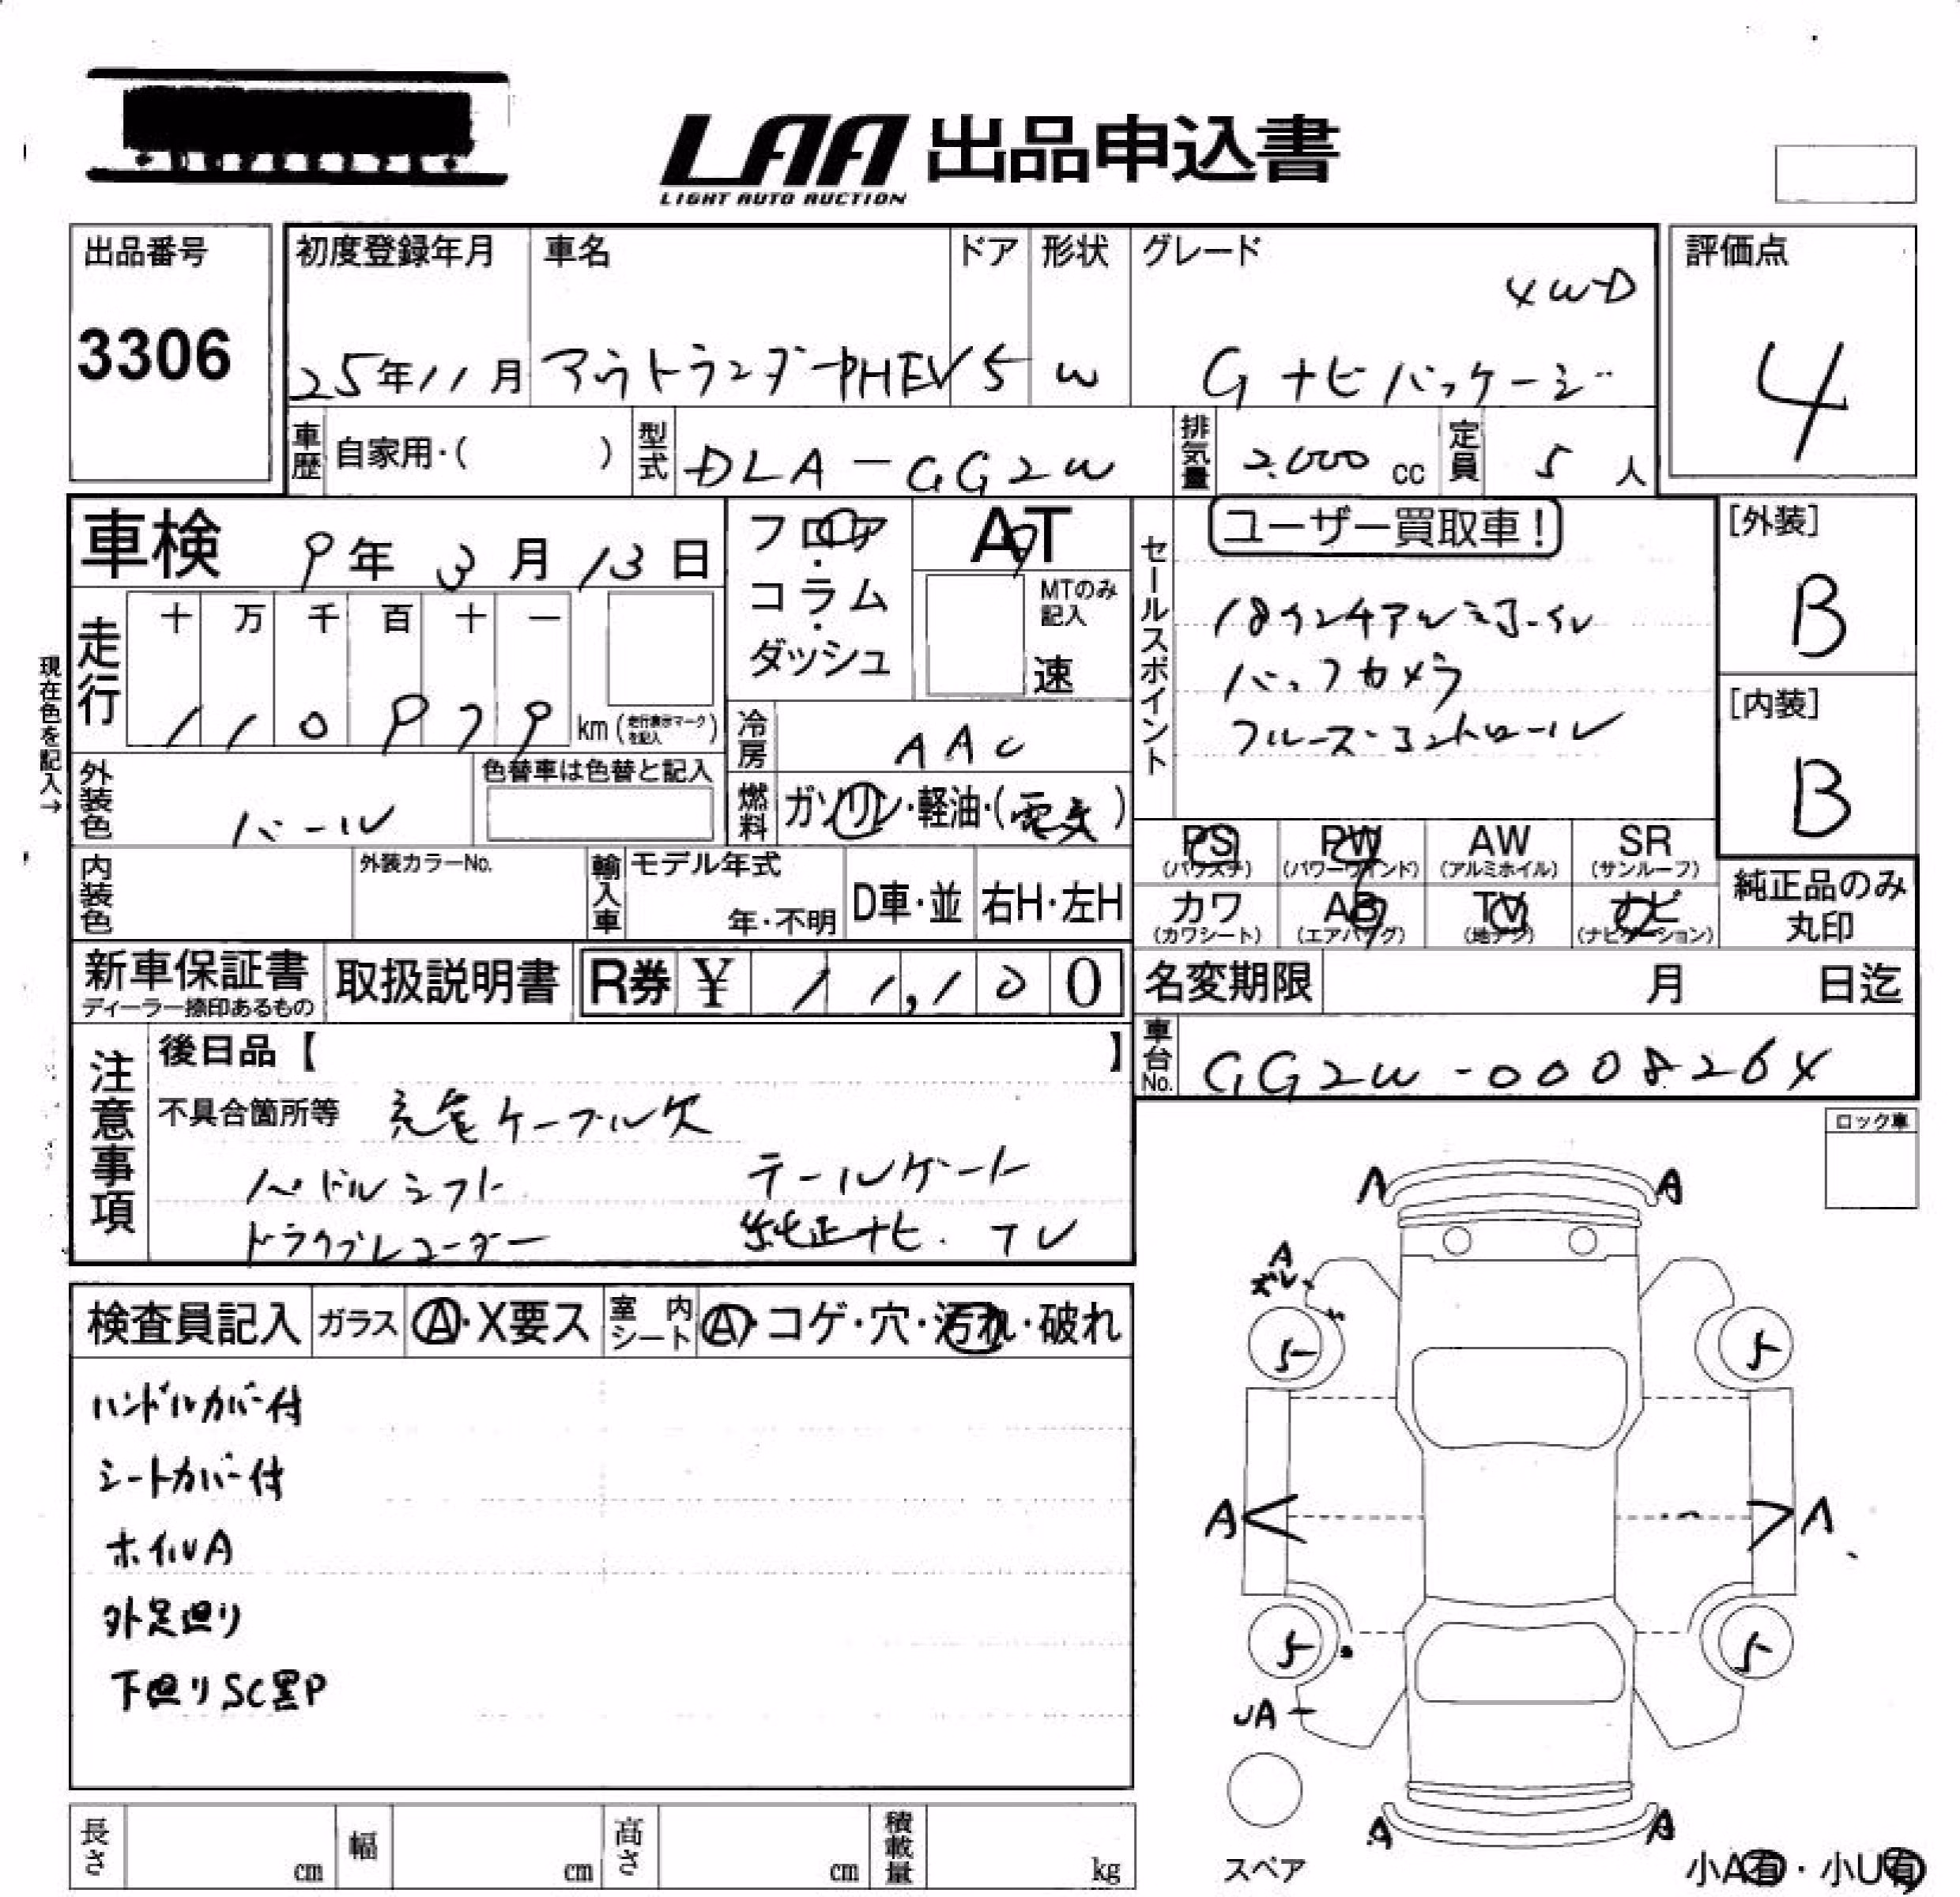 LAA 出品申込書
LIGHT AUTO AUCTION
出品番号 初度登録年月 車名 ドア 形状 グレード 評価点
4WD
3306 25年11月 アウトランダーPHEV 5 W Gナビパッケージ 4
車歴 自家用・( ) 型式 DLA-GG2W 排気量 2.000 cc 定員 5 人
車検 9年3月13日 フロア・コラム・ダッシュ AT セールスポイント ユーザー買取車! [外装]
B
MTのみ記入 速
18インチアルミホイル
バックカメラ
クルーズコントロール
[内装]
B
現在色を記入→
走行 十 万 千 百 十 一
1 1 0 9 7 9 km(走行表示マークを記入)
冷房 AAC
外装色 パール 色替車は色替と記入 燃料 ガソリン・軽油・(電気)
PS PW AW SR
(パワステ) (パワーウインド) (アルミホイル) (サンルーフ)
カワ AB TV ナビ
(カワシート) (エアバッグ) (地デジ) (ナビゲーション)
純正品のみ丸印
内装色 外装カラーNo. 輸入車 モデル年式 年・不明 D車・並 右H・左H
新車保証書 取扱説明書 R券 ¥ 11,100 名変期限 月 日迄
ディーラー捺印あるもの
車台No. GG2W-0008264
注意事項 後日品【 】
不具合箇所等 充電ケーブル欠
パドルシフト テールゲート
ドライブレコーダー 純正ナビ. TV
ロック車
検査員記入 ガラス A・X要ス 室内シート A・コゲ・穴・汚れ・破れ
ハンドルカバー付
シートカバー付
ホイルA
外足廻り
下廻りSC黒P
A A
A
ズレ
5 5
A A
5 5
UA
A A
スペア
小A有・小U有
長さ cm 幅 cm 高さ cm 積載量 kg